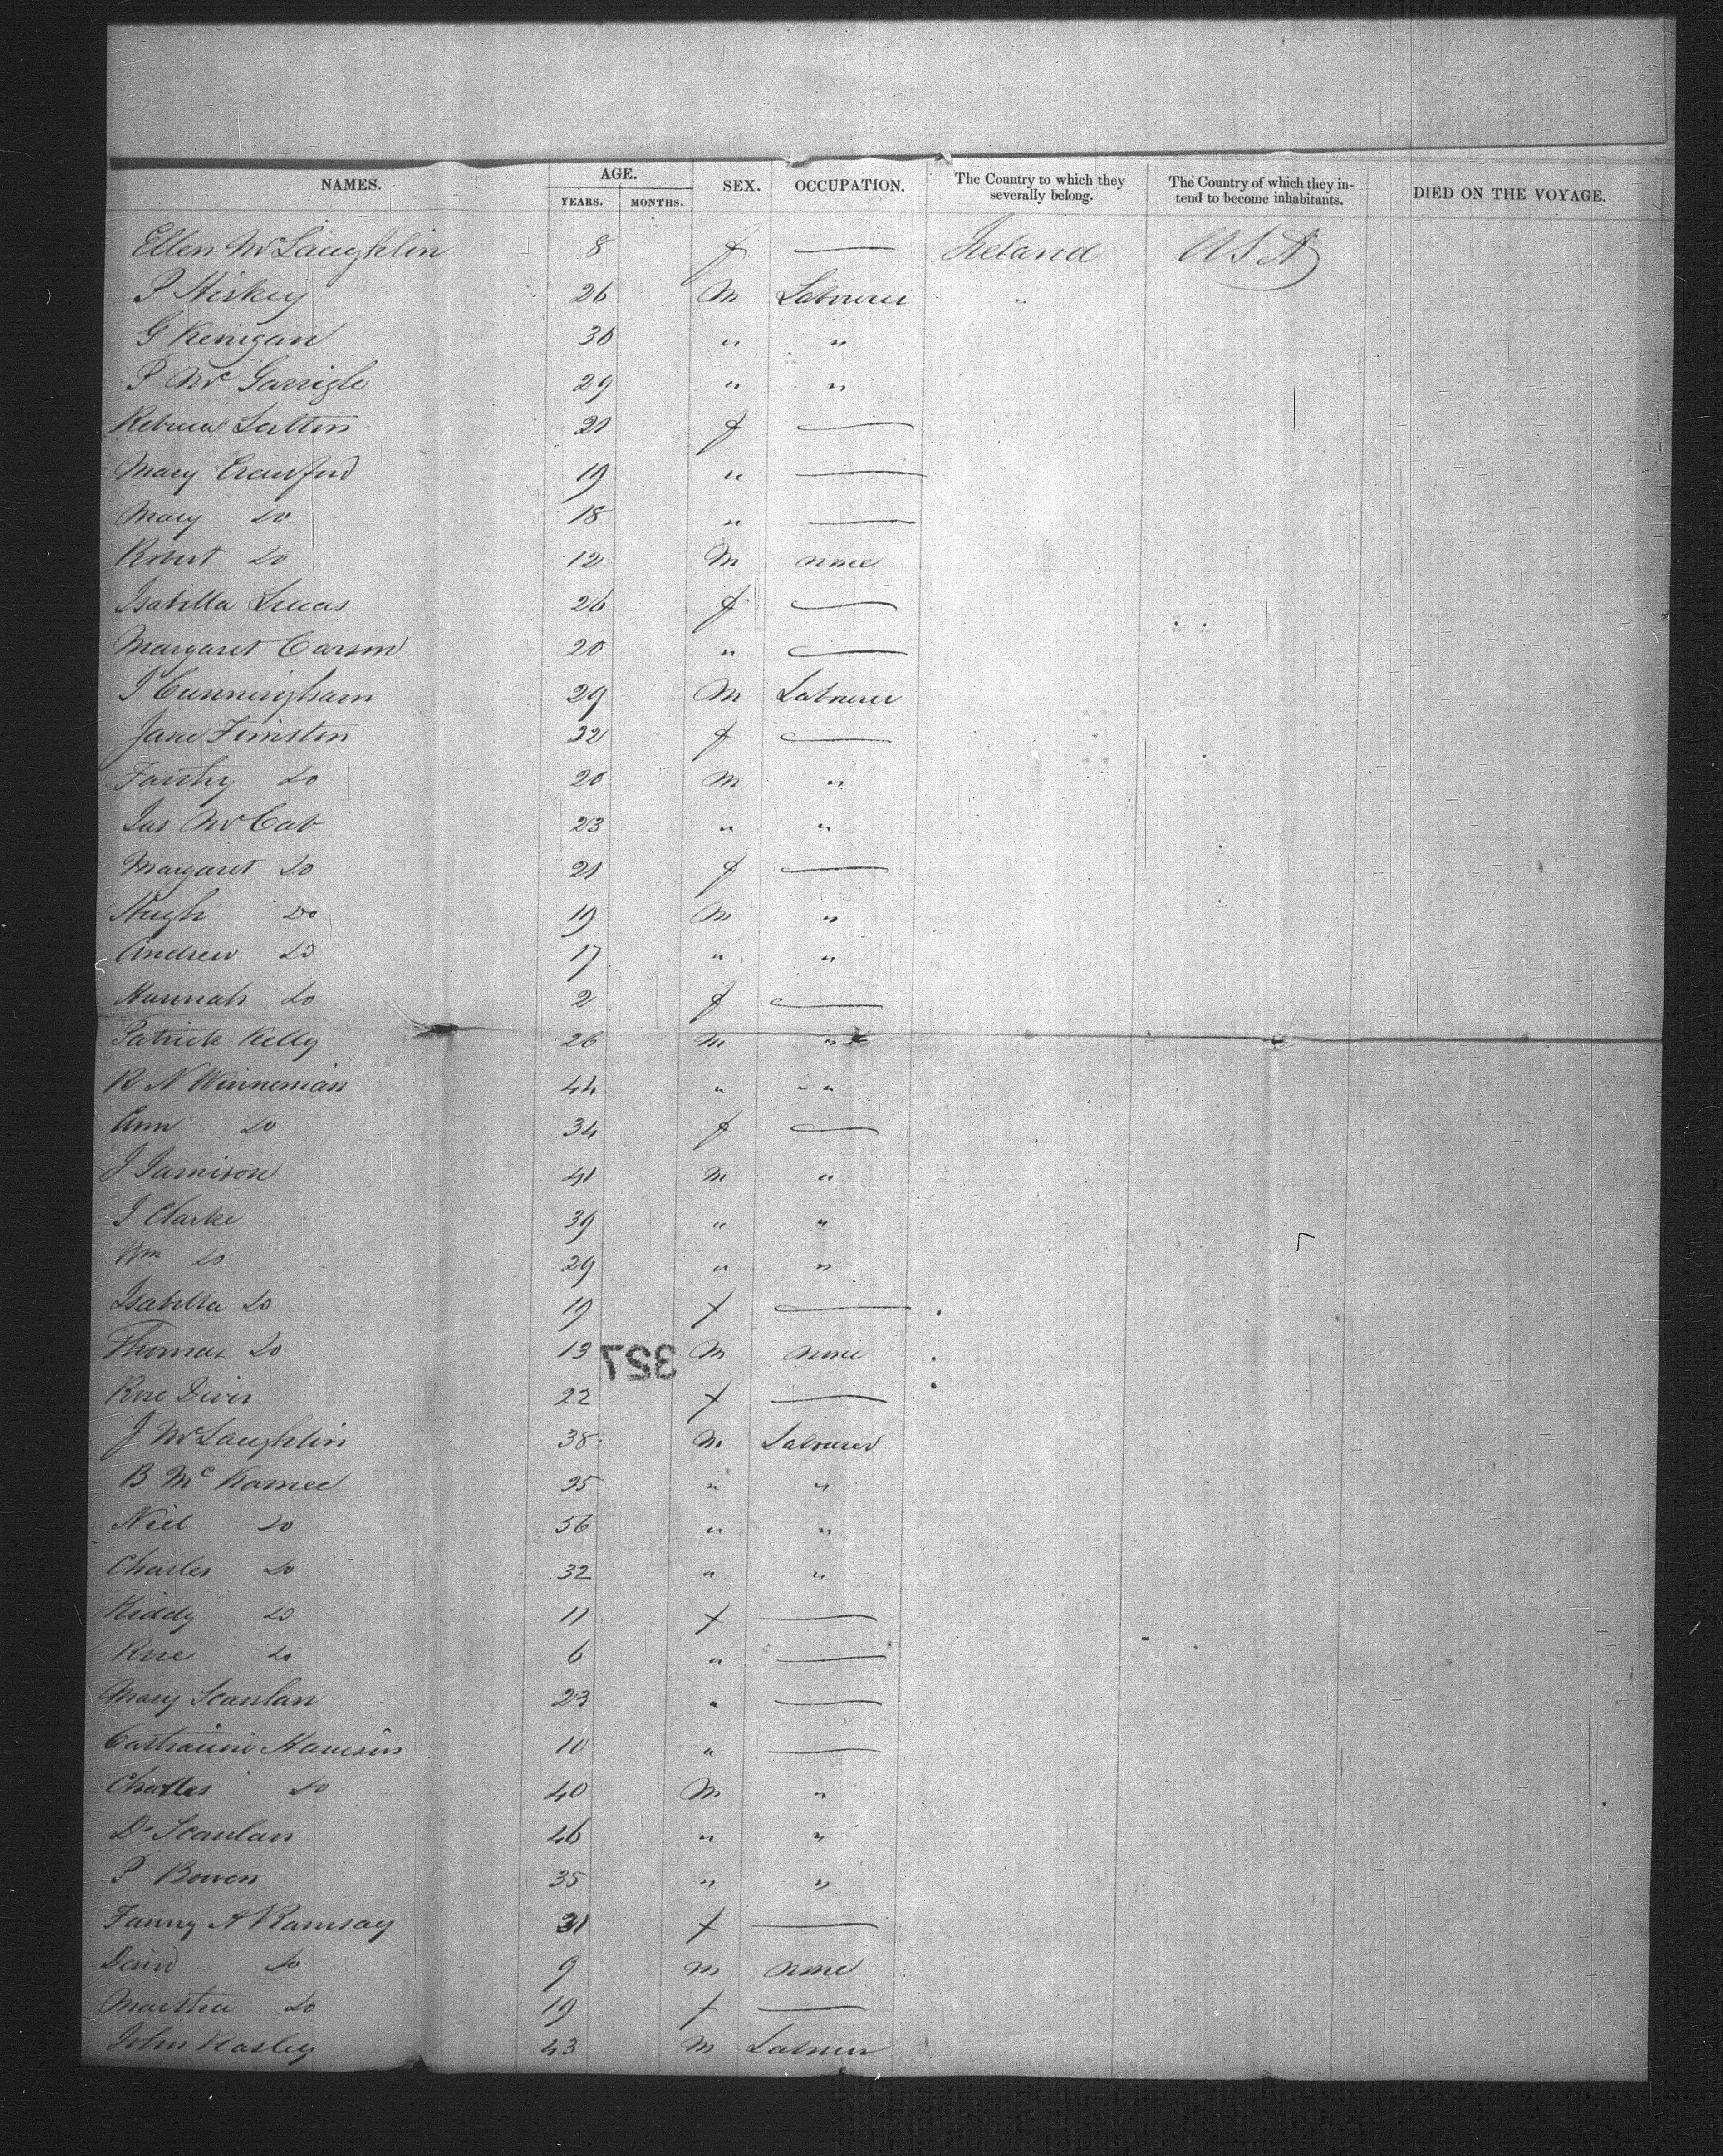 NAMES. AGE. SEX. OCCUPATION. The Country to which they severally belong. The Country of which they intend to become inhabitants. DIED ON THE VOYAGE.
YEARS. MONTHS.
Ellen McLaughlin 8 f — Ireland USA
P Hiskey 26 M Labourer "
G Kerrigan 30 " "
P Mc Garrigle 29 " "
Rebecca 21 f —
Mary Crawford 19 " —
Mary Do 18 " —
Robert Do 12 M none
Isabella Lucas 26 f —
Margaret Carson 20 " —
J Cunningham 29 M Labourer
Jane Finiston 32 f —
Do 20 M "
Jas McCab 23 " "
Margaret Do 21 f —
Hugh Do 19 M "
Andrew Do 17 " "
Hannah Do 2 f —
Patrick Kelly 26 M "
R N 44 " "
Ann Do 34 f —
J Jamison 41 M "
J Clarke 39 " "
Wm Do 29 " "
Isabella Do 19 f —
Thomas Do 13 M none
327
Rose Diver 22 f —
J McLaughlin 38 M Labourer
B Mc Kamee " "
Niel Do 56 " "
Charles Do 32 " "
Kiddy Do 11 f —
Rose Do 6 " —
Mary Scanlan 23 " —
10 " —
Charles Do 40 M "
D Scanlan 46 " "
P Bowen 35 " "
Fanny A Ramsay 31 f —
David Do 9 M none
Martha Do 19 f —
John Rasley 43 M Labourer